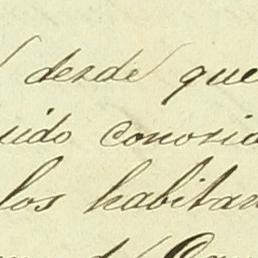 desde que
uido conosid
los habitan